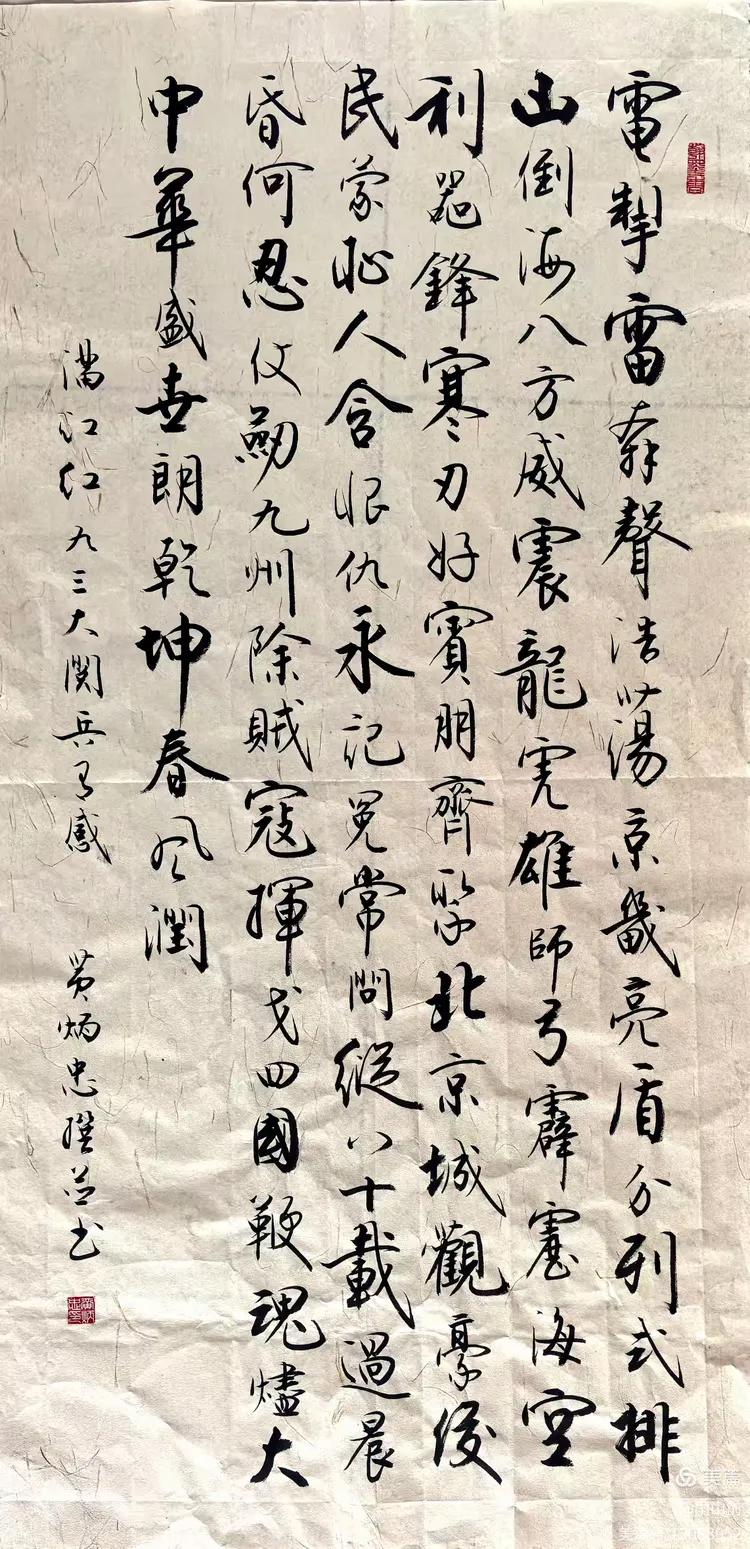 電掣雷奔聲浩蕩京畿亮盾分列式排
山倒海八方威震龍虎雄師弓霹靂海空
利器鋒寒刃好賓朋齊聚北京城觀豪俊
民蒙恥人含恨仇永記冤常問縱八十載過晨
昏何忍仗劒九州除賊寇揮戈四國鞭魂燼大
中華盛世朗乾坤春風潤
滿江紅九三大閱兵有感
黄炳忠撰并书
美篇